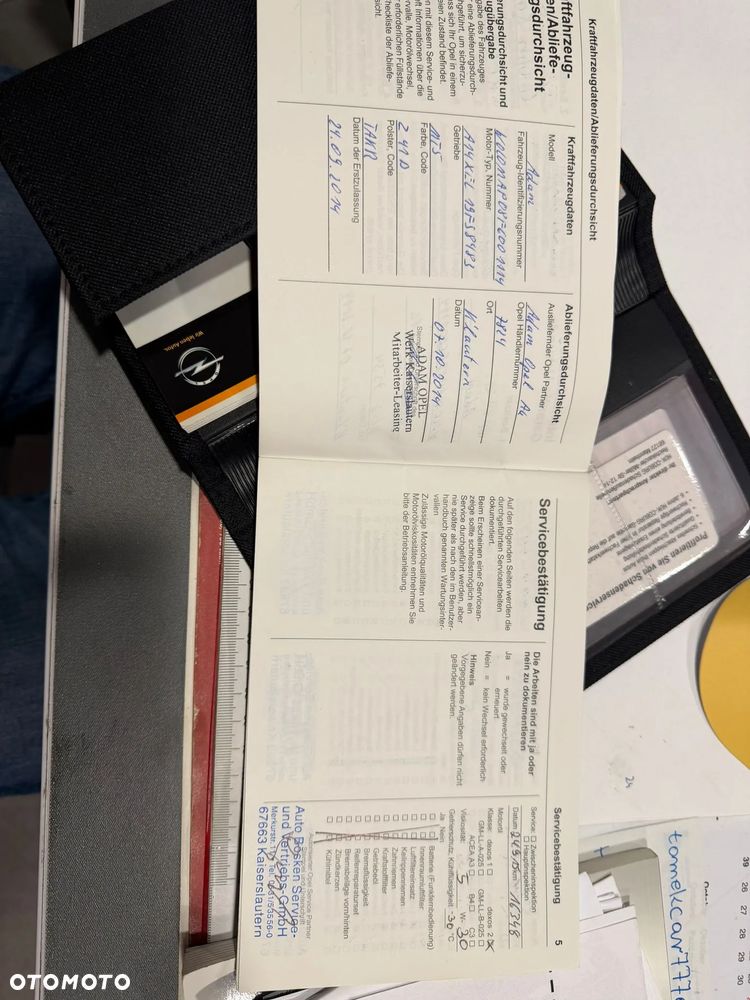 Kraftfahrzeugdaten/Ablieferungsdurchsicht
ftfahrzeug-
en/Abliefe-
gsdurchsicht
erungsdurchsicht und
eugübergabe
gabe des Fahrzeuges
r eine Ablieferungsdurch-
geführt, um sicherzu-
ass sich Ihr Opel in einem
eien Zustand befindet.
n mit diesem Service- und
ft Informationen über die
ervalle, Motorölwechsel,
erforderlichen Füllstände
heckliste der Abliefe-
sicht.
Kraftfahrzeugdaten
Modell
Adam
Fahrzeug-Identifizierungsnummer
Motor-Typ, Nummer
A14XEL 19FS8483
Getriebe
MT5
Farbe, Code
241D
Polster, Code
TAKR
Datum der Erstzulassung
24.09.2014
Ablieferungsdurchsicht
Ausliefernder Opel Partner
Adam Opel AG
Opel Händlernummer
Ort
K'lautern
Datum
07.10.2014
ADAM OPEL
Werk Kaiserslautern
Mitarbeiter-Leasing
Wir leben Autos.
Servicebestätigung
Auf den folgenden Seiten werden die
durchgeführten Servicearbeiten
dokumentiert.
Beim Erscheinen einer Servicean-
zeige sollte schnellstmöglich ein
Service durchgeführt werden, aber
nie später als nach den im Benutzer-
handbuch genannten Wartungsinter-
vallen
Zulässige Motorölqualitäten und
Motorölviskositäten entnehmen Sie
bitte der Betriebsanleitung.
Die Arbeiten sind mit ja oder
nein zu dokumentieren
Ja = wurde gewechselt oder
erneuert
Nein = kein Wechsel erforderlich
Hinweis
Vorgegebene Angaben dürfen nicht
geändert werden.
Servicebestätigung 5
Service: Zwischeninspektion
Hauptinspektion
Datum km 16348
Motoröl
Klasse: dexos 1 dexos 2 X
GM-LL-A-025 GM-LL-B-025
ACEA A3 B4 C3
Viskosität: 5 W- 30
Gefrierschutz, Kühlflüssigkeit -30 °C
Ja Nein
Batterie (Funkfernbedienung)
Innenraumluftfilter
Luftfiltereinsatz
Keilrippenriemen
Zahnriemen
Kraftstofffilter
Getriebeöl
Bremsflüssigkeit
Reifenreparaturset
Bremsbeläge vorn/hinten
Zündkerzen
Kühlmittel
Auto Bosken Service-
und Vertriebs-GmbH
67663 Kaiserslautern
Profitieren Sie von Schadenservice
68127 Mannheim
24
tomekcar777
39
26
27
28
29
30
OTOMOTO